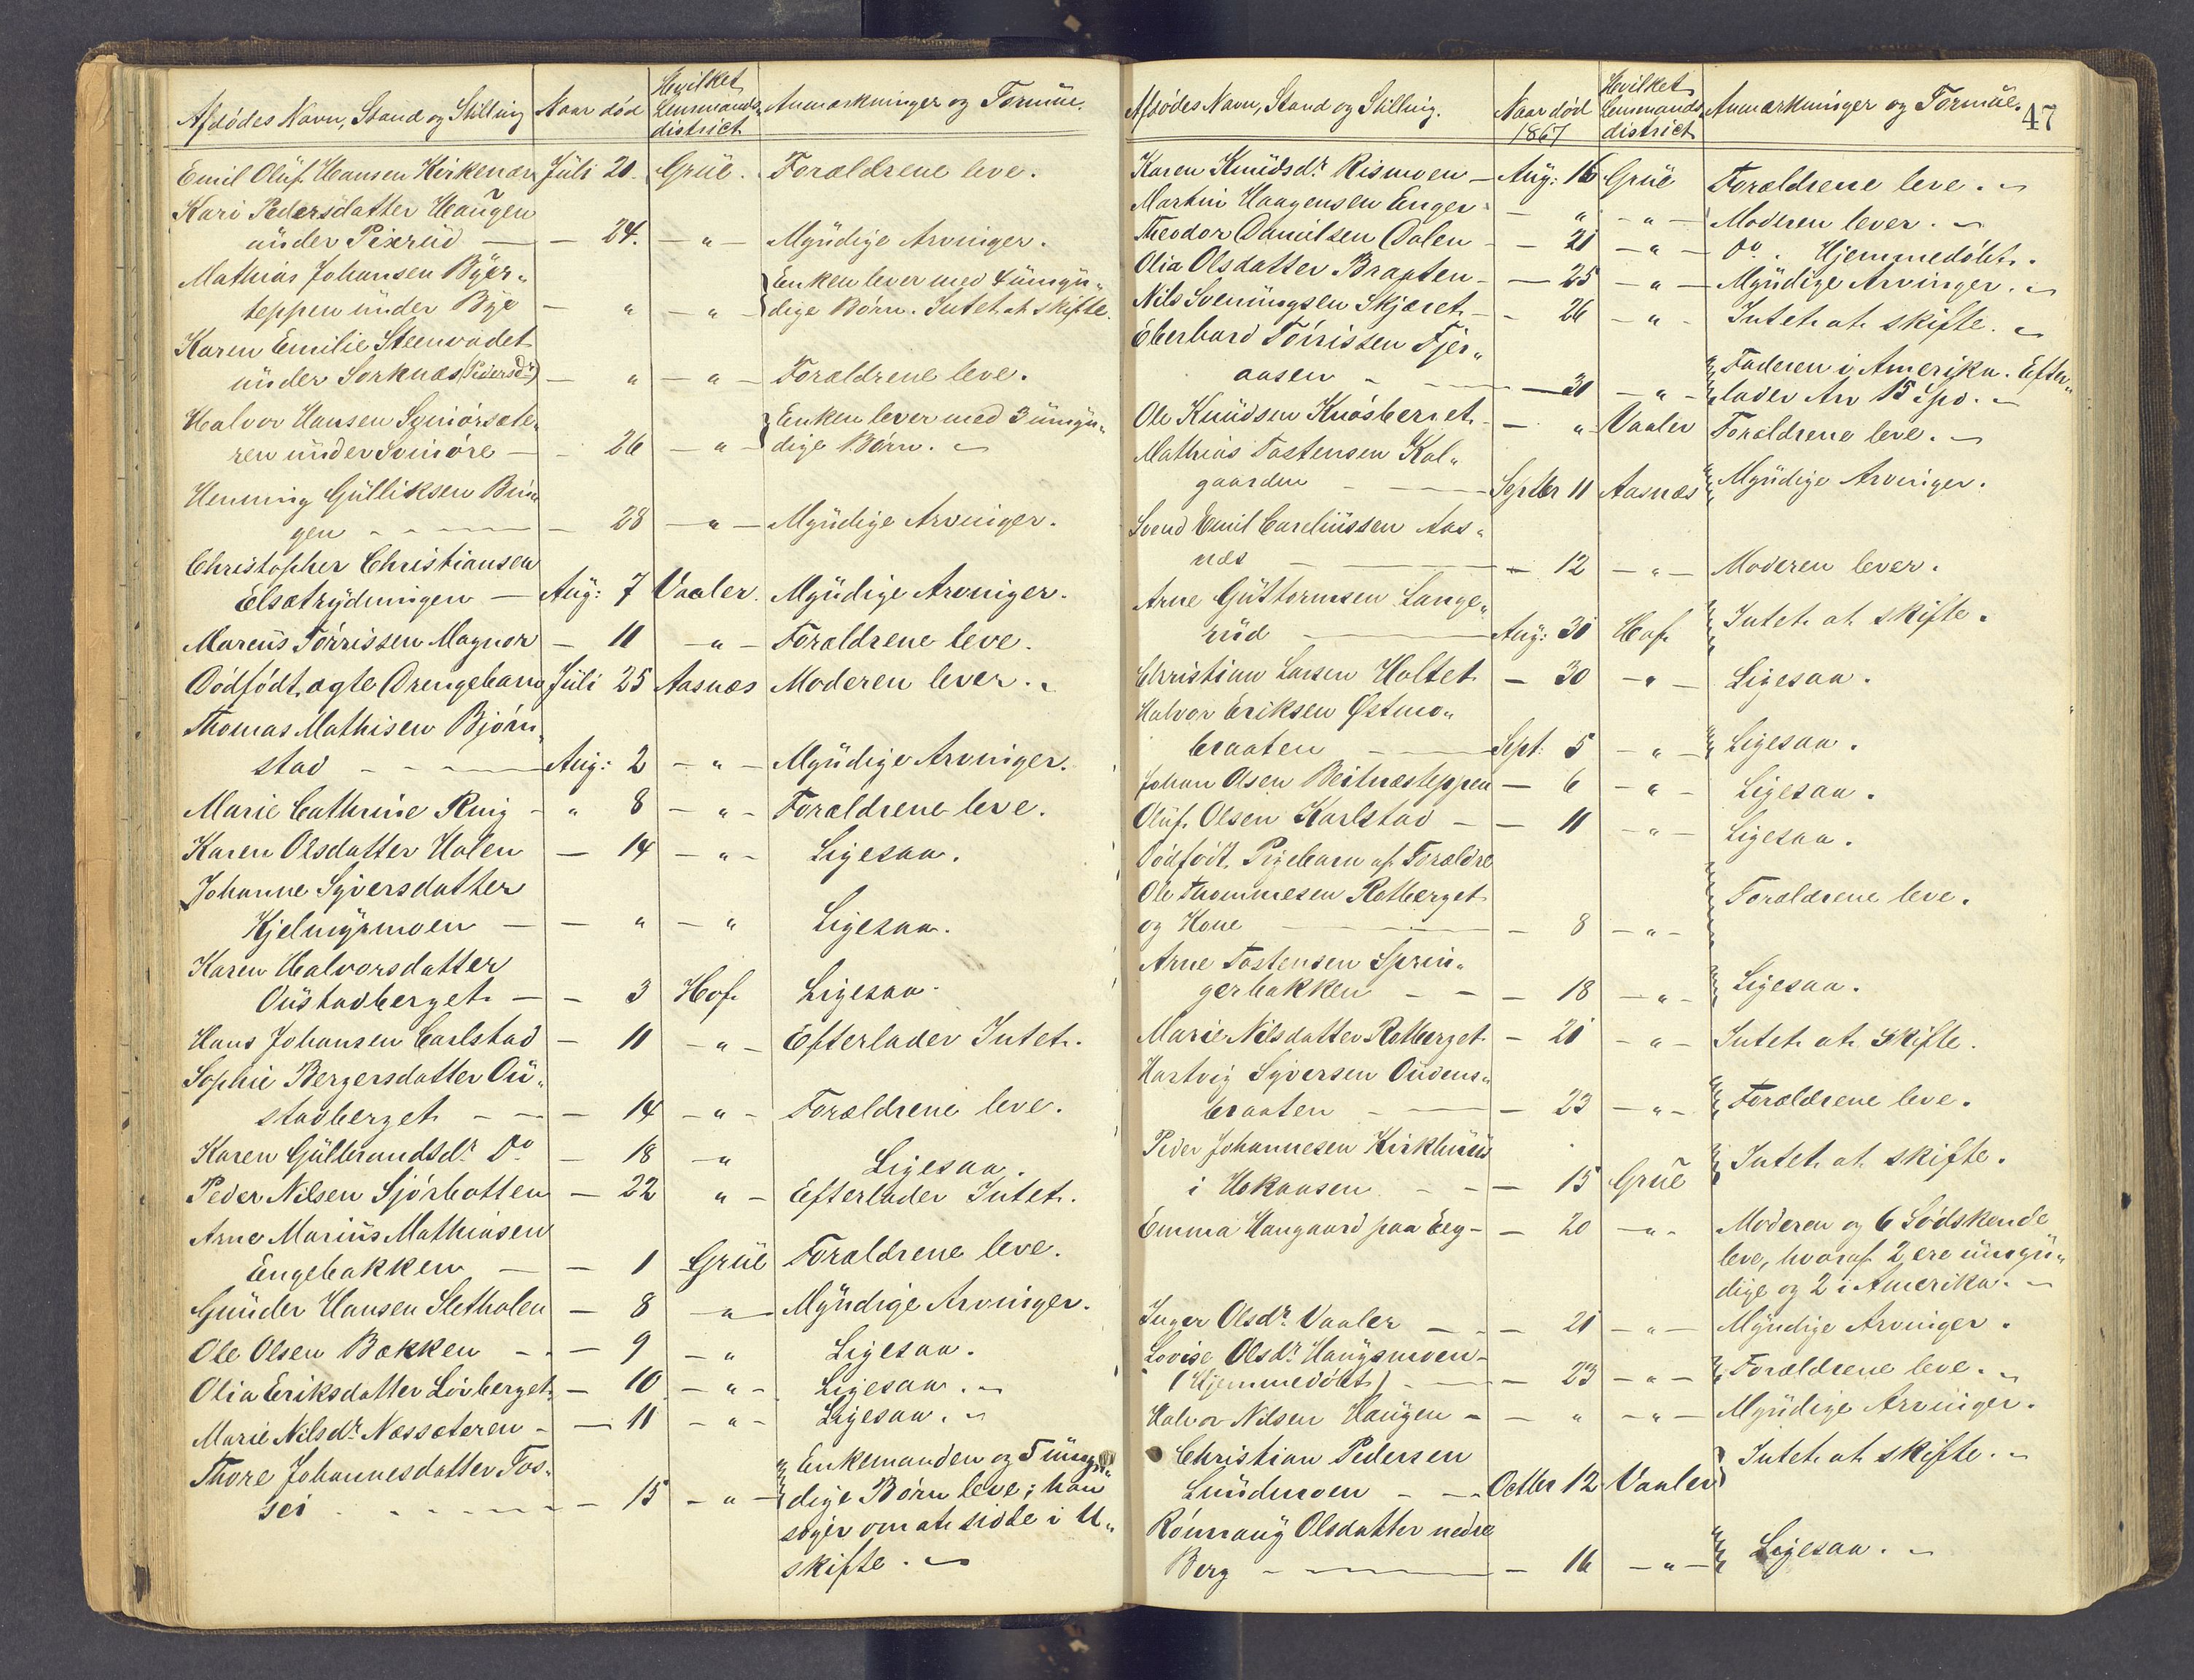 Afdødes Navn, Stand og Stilling Naar død Hvilket Lensmands- district Anmærkninger og Formue.
Emil Oluf Hansen Kirkenær Juli 20. Grue. Forældrene leve.
Kari Pedersdatter Haugen
under Pixrud — — 24. — " — Myndige Arvinger.
Mathias Johansen Byer- Enken lever med 4 umyn-
teppen under Bye — " — " — dige Børn. Intet at skifte.
Karen Emilie Steenvadet
under Sorknæs (Pedersdr) — " — " — Forældrene leve.
Halvor Hansen Svenørsæte- Enken lever med 3 umyn-
ren under Svenøre — 26 — " — dige Børn.
Henning Gulliksen Brin-
gen — 28 — " — Myndige Arvinger.
Christopher Christiansen
Elsætrydningen — Aug: 7 Vaaler. Myndige Arvinger.
Marcus Tørrissen Magnor — 11 — " — Forældrene leve.
Dødfødt ægte Drengebarn Juli 25 Aasnæs Moderen lever.
Thomas Mathisen Bjørn-
stad — Aug: 2 — " — Myndige Arvinger.
Marie Cathrine Ring — " 8 — " — Forældrene leve.
Karen Olsdatter Holen — 14 — " — Ligesaa.
Johanne Syversdatter
Kjelmyrmoen — — " — " Ligesaa.
Karen Halvorsdatter
Oustadberget — — 3 Hof Ligesaa.
Hans Johansen Carlstad — 11 — " — Efterlader Intet.
Sophie Bergersdatter Ou-
stadberget — — 14 — " — Forældrene leve.
Karen Gulbrandsdr Do — 18 — " Ligesaa.
Peder Nilsen Sjørbotten — 22 " — Efterlader Intet.
Arne Marius Mathiasen
Engebakken — — 1 Grue Forældrene leve.
Gunder Hansen Sletholen — 8 — " — Myndige Arvinger.
Ole Olsen Bakken — — 9 — " Ligesaa.
Olia Eriksdatter Løvberget — 10 — " — Ligesaa.
Marie Nilsdr Næssæteren — — 11 — " — Ligesaa.
Thore Johannesdatter Tos- Enkemanden og 5 umyn-
sei — 15 — " — dige Børn leve; han
søger om at sidde i U-
skifte.
Afdødes Navn, Stand og Stilling. Naar død 1867 Hvilket Lensmands- district Anmærkninger og Formue. 47
Karen Knudsdr Rismoen — Aug: 16 Grue Forældrene leve.
Martin Haagensen Enger — " — " — Moderen lever.
Theodor Danielsen Dalen — — 21 — " — Do. Hjemmedøbt.
Olia Olsdatter Braaten — — 25 — " — Myndige Arvinger.
Nils Sveningsen Skjæret — — 26 — " — Intet at skifte.
Eberhard Tørrissen Fjer- Faderen i Amerika. Efter-
aasen — — 30 — " — lader Arv 15 Spd.
Ole Knudsen Knøsberget — — " — Vaaler Forældrene leve.
Mathias Tostensen Kol-
gaarden — Septbr 11 Aasnæs Myndige Arvinger.
Svend Emil Careliussen Aas-
næs — — 12 — " — Moderen lever.
Arne Guttormsen Lange-
rud — Aug: 30 Hof Intet at skifte.
Christian Larsen Holtet — 30 — " — Ligesaa.
Halvor Eriksen Østmo-
braaten — Sept: 5 — " — Ligesaa.
Johan Olsen Beitnæsteppen — 6 — " — Ligesaa.
Oluf Olsen Karlstad — — 11 — " — Ligesaa.
Dødfødt Pigebarn af Forældre
Ole Thommesen Rotberget Forældrene leve.
og Kone — — 8 — " —
Arne Tostensen Sprin-
gerbakken — — 18 — " — Ligesaa.
Marie Nilsdatter Rotberget — 21 — " — Intet at skifte.
Hartvig Syversen Oudens-
braaten — — 23 — " — Forældrene leve.
Peder Johannesen Kirklund Intet at skifte.
i Hokaasen — — 15 Grue
Emma Haugaard paa Eeg — — 20 — " — Moderen og 6 Sødskende
leve, hvoraf 2 ere umyn-
dige og 2 i Amerika.
Inger Olsdr Vaaler — — 21 — " — Myndige Arvinger.
Lovise Olsdr Haugsmoen —
(Hjemmedøbt) — — 23 — " — Forældrene leve.
Halvor Nilsen Haugen — — " — " — Myndige Arvinger.
Christian Pedersen Intet at skifte.
Lundmoen — — Octbr 12 Vaaler
Rønnaug Olsdatter nedre
Berg — — 16 — " — Ligesaa.